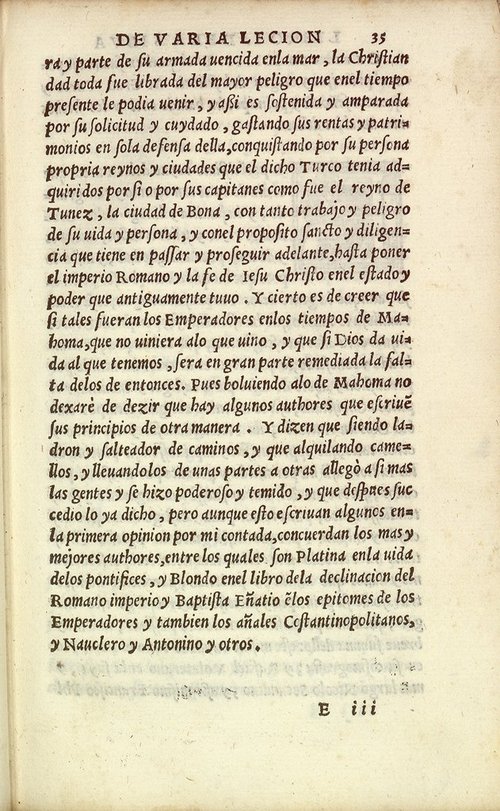 DE VARIA LECION 35
ra y parte de su armada uencida enla mar, la Christian
dad toda fue librada del mayor peligro que enel tiempo
presente le podia uenir, y aßi es sostenida y amparada
por su solicitud y cuydado, gastando sus rentas y patri=
monios en sola defensa della, conquistando por su persona
propria reynos y ciudades que el dicho Turco tenia ad=
quiridos por si o por sus capitanes como fue el reyno de
Tunez, la ciudad de Bona, con tanto trabajo y peligro
de su uida y persona, y conel proposito sancto y diligen=
cia que tiene en passar y proseguir adelante, hasta poner
el imperio Romano y la fe de Iesu Christo enel estado y
poder que antiguamente tuuo. Y cierto es de creer que
si tales fueran los Emperadores enlos tiempos de Ma=
homa, que no uiniera alo que uino, y que si Dios da ui=
da al que tenemos, sera en gran parte remediada la fal=
ta delos de entonces. Pues boluiendo alo de Mahoma no
dexarè de dezir que hay algunos authores que escriuē
sus principios de otra manera. Y dizen que siendo la=
dron y salteador de caminos, y que alquilando came=
llos, y lleuandolos de unas partes a otras allegò a si mas
las gentes y se hizo poderoso y temido, y que despues suc
cedio lo ya dicho, pero aunque esto escriuan algunos en=
la primera opinion por mi contada, concuerdan los mas y
mejores authores, entre los quales son Platina enla uida
delos pontifices, y Blondo enel libro dela declinacion del
Romano imperio y Baptista Eñatio ēlos epitomes de los
Emperadores y tambien los añales Costantinopolitanos,
y Nauclero y Antonino y otros.
E iii